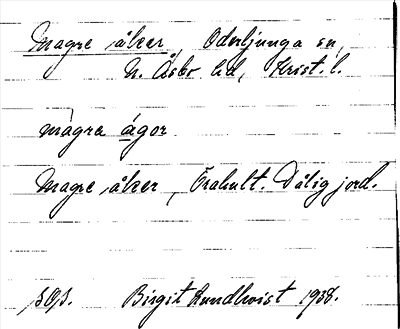 Magre åker, Oderljunga sn,
N. Åsbo hd, Krist. l.
màgra ágor.
Magre åker, Trahult. Dålig jord.
Birgit Rundkvist 1938.